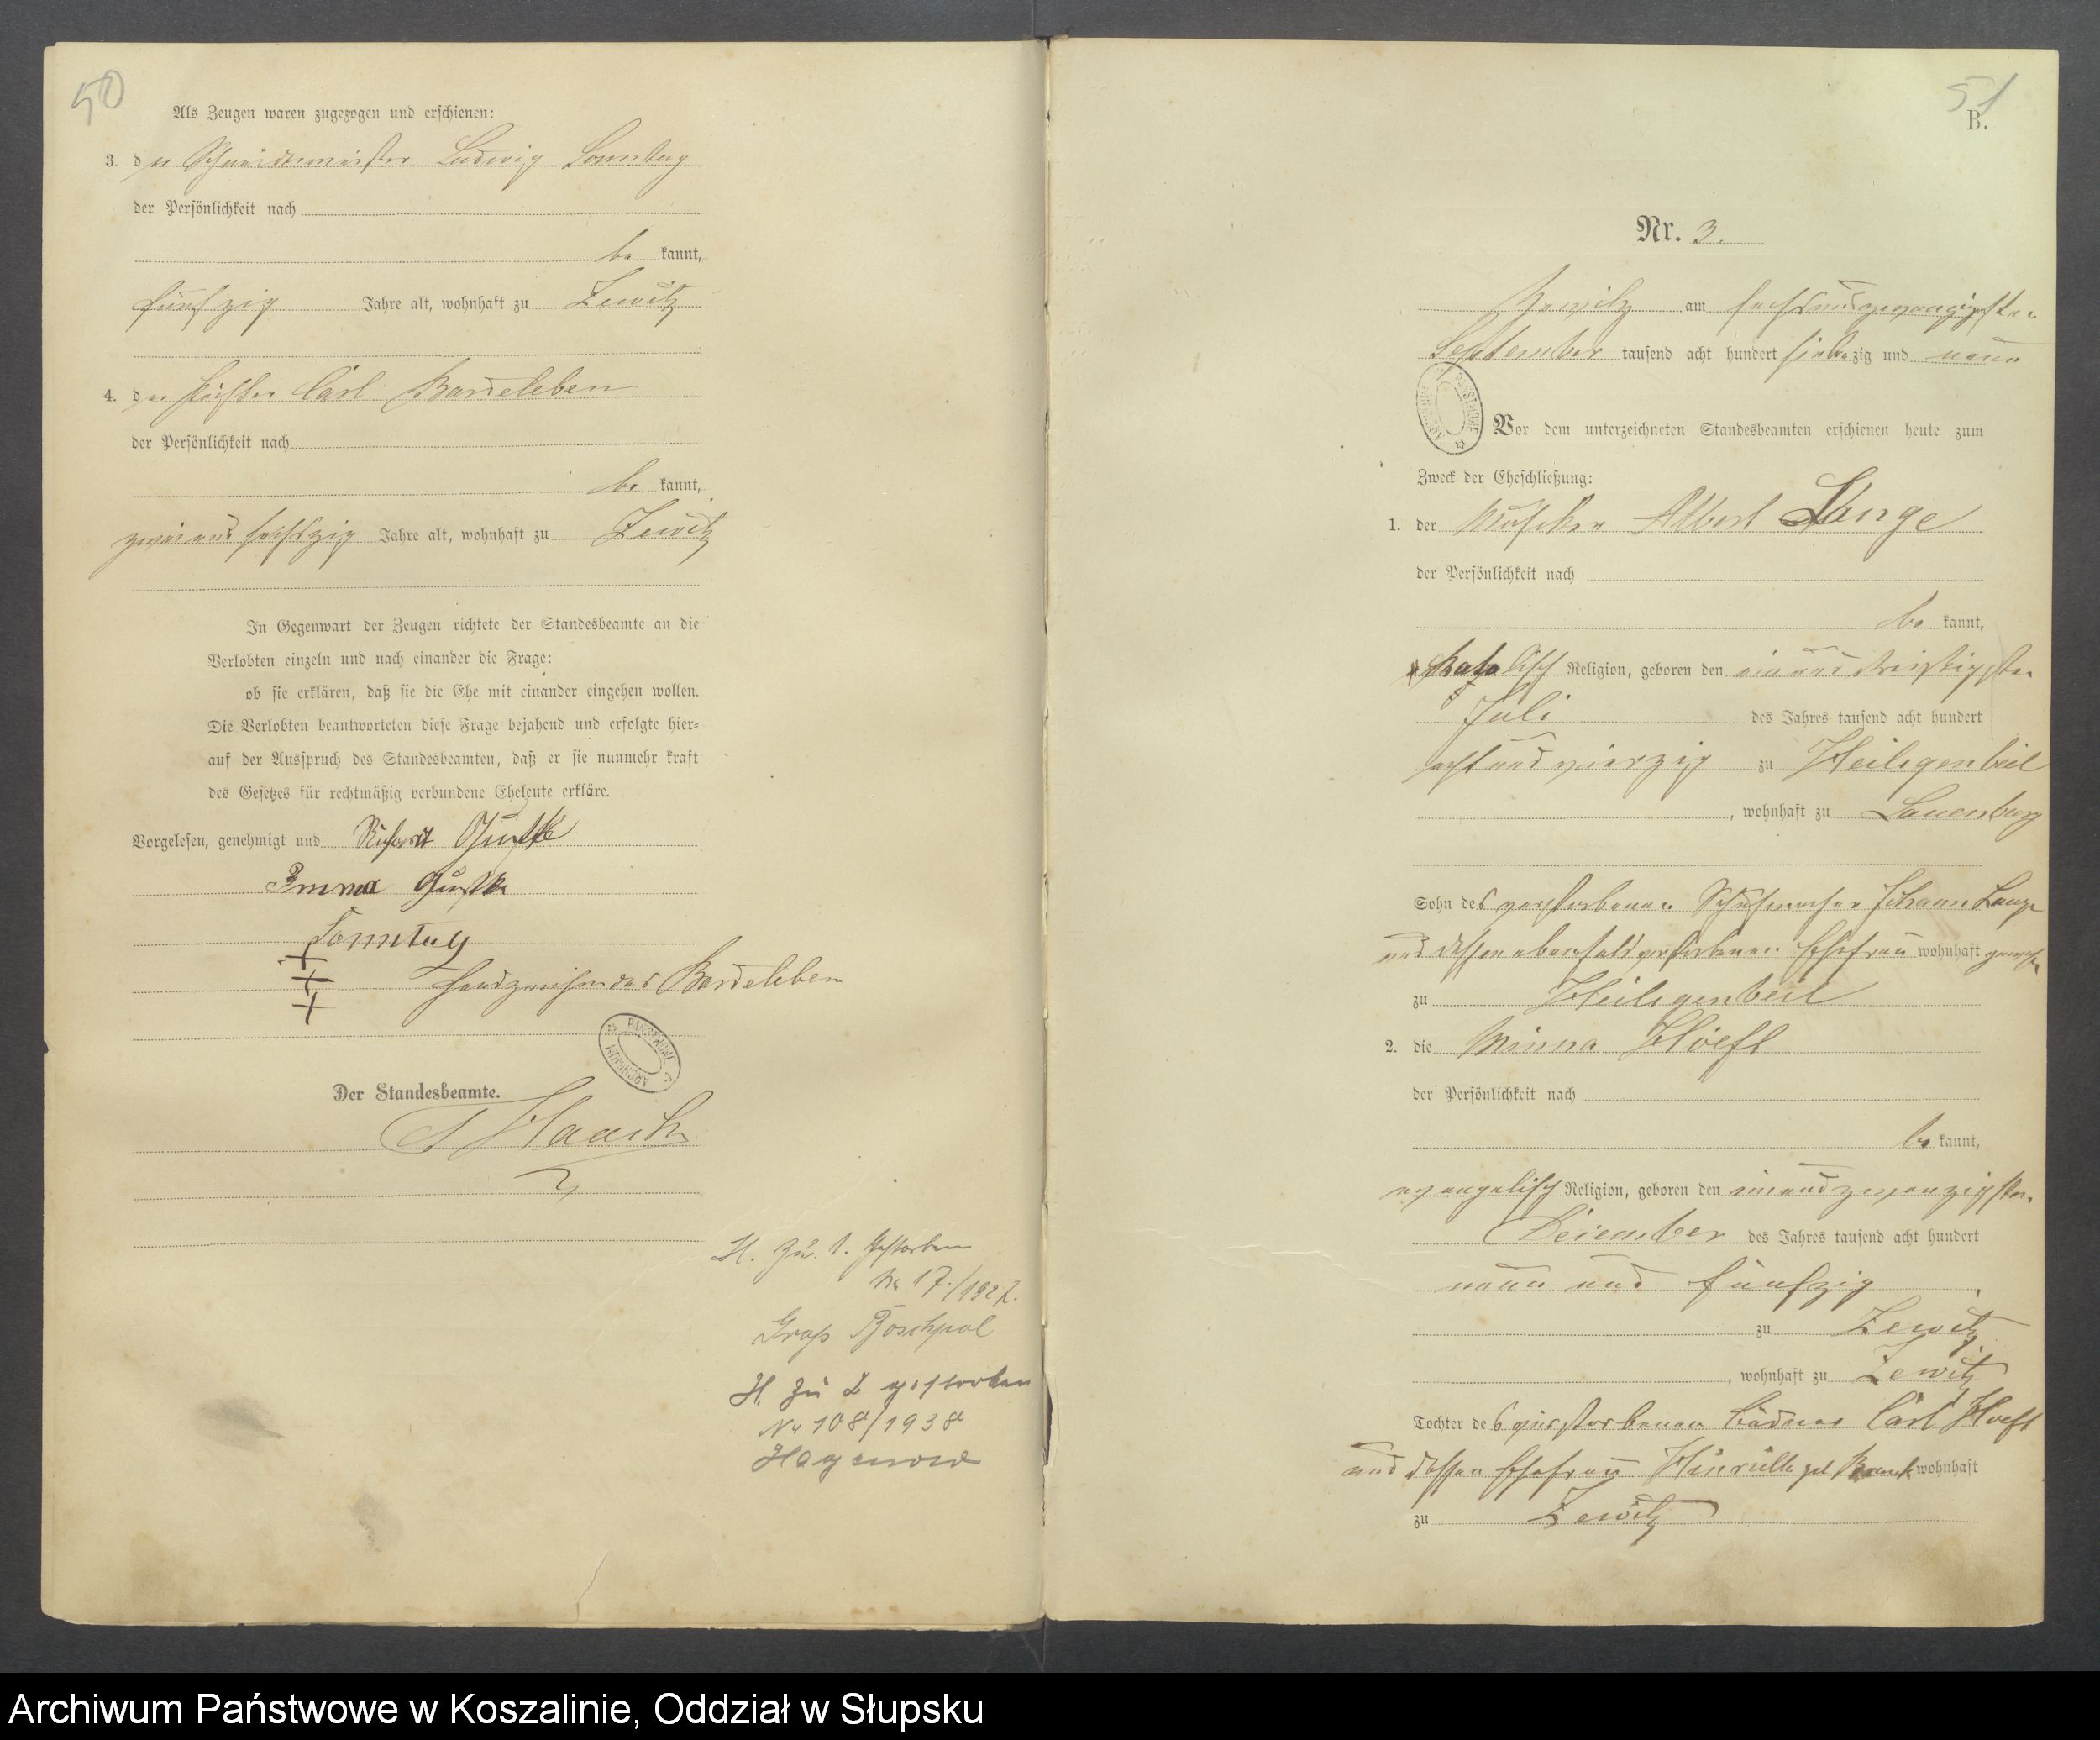 50
Als Zeugen waren zugezogen und erschienen:
3. der Schneidermeister Ludwig
der Persönlichkeit nach
be kannt,
fünfzig Jahre alt, wohnhaft zu Zewitz
4. der Carl Bardeleben
der Persönlichkeit nach
be kannt,
zwei und sechszig Jahre alt, wohnhaft zu Zewitz
In Gegenwart der Zeugen richtete der Standesbeamte an die
Verlobten einzeln und nach einander die Frage:
ob sie erklären, daß sie die Ehe mit einander eingehen wollen.
Die Verlobten beantworteten diese Frage bejahend und erfolgte hier-
auf der Ausspruch des Standesbeamten, daß er sie nunmehr kraft
des Gesetzes für rechtmäßig verbundene Eheleute erkläre.
Vorgelesen, genehmigt und
+
+ Handzeichen des Bardeleben
+
PAŃSTWOWE ARCHIWUM
Der Standesbeamte.
Haack
H. zu. 1. gestorben
No 17./192
Groß Boschpol
H. zu 2 gestorben
Nr 108/1938
Hagenow
51
B.
Nr. 3.
am sechsundzwanzigsten
September tausend acht hundert siebenzig und neun
PAŃSTWOWE ARCHIWUM
Vor dem unterzeichneten Standesbeamten erschienen heute zum
Zweck der Eheschließung:
1. der Albert Lange
der Persönlichkeit nach
be kannt,
katholisch Religion, geboren den einunddreißigsten
Juli des Jahres tausend acht hundert
achtundvierzig zu Heiligenbeil
, wohnhaft zu Lauenburg
Sohn des verstorbenen Schuhmacher Johann Lange
und dessen ebenfalls verstorbenen Ehefrau wohnhaft gewesen
zu Heiligenbeil
2. die Minna Hoeft
der Persönlichkeit nach
be kannt,
evangelisch Religion, geboren den einundzwanzigsten
Dezember des Jahres tausend acht hundert
neun und fünfzig
zu Zewitz
, wohnhaft zu Zewitz
Tochter des verstorbenen Büdner Carl Hoeft
und dessen Ehefrau geb wohnhaft
zu Zewitz
Archiwum Państwowe w Koszalinie, Oddział w Słupsku